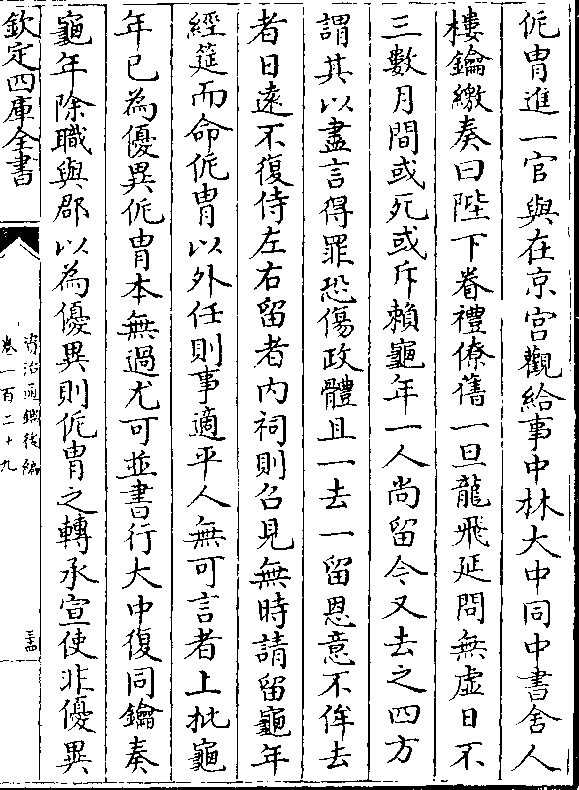 侂胄進一官與在京宫觀給事中林大中同中書舎人
樓鑰繳奏曰陛下眷禮僚舊一旦龍飛延問無虚日不
三數月間或死或斥賴龜年一人尚留今又去之四方
謂其以盡言得罪恐傷政體且一去一留恩意不侔去
者日逺不復侍左右留者内祠則召見無時請留龜年
經筵而命侂胄以外任則事適平人無可言者上批龜
年已為優異侂胄本無過尤可並書行大中復同鑰奏
龜年除職與郡以為優異則侂胄之轉承宣使非優異
欽定四庫全書
資治通鑑後編
卷一百二十九